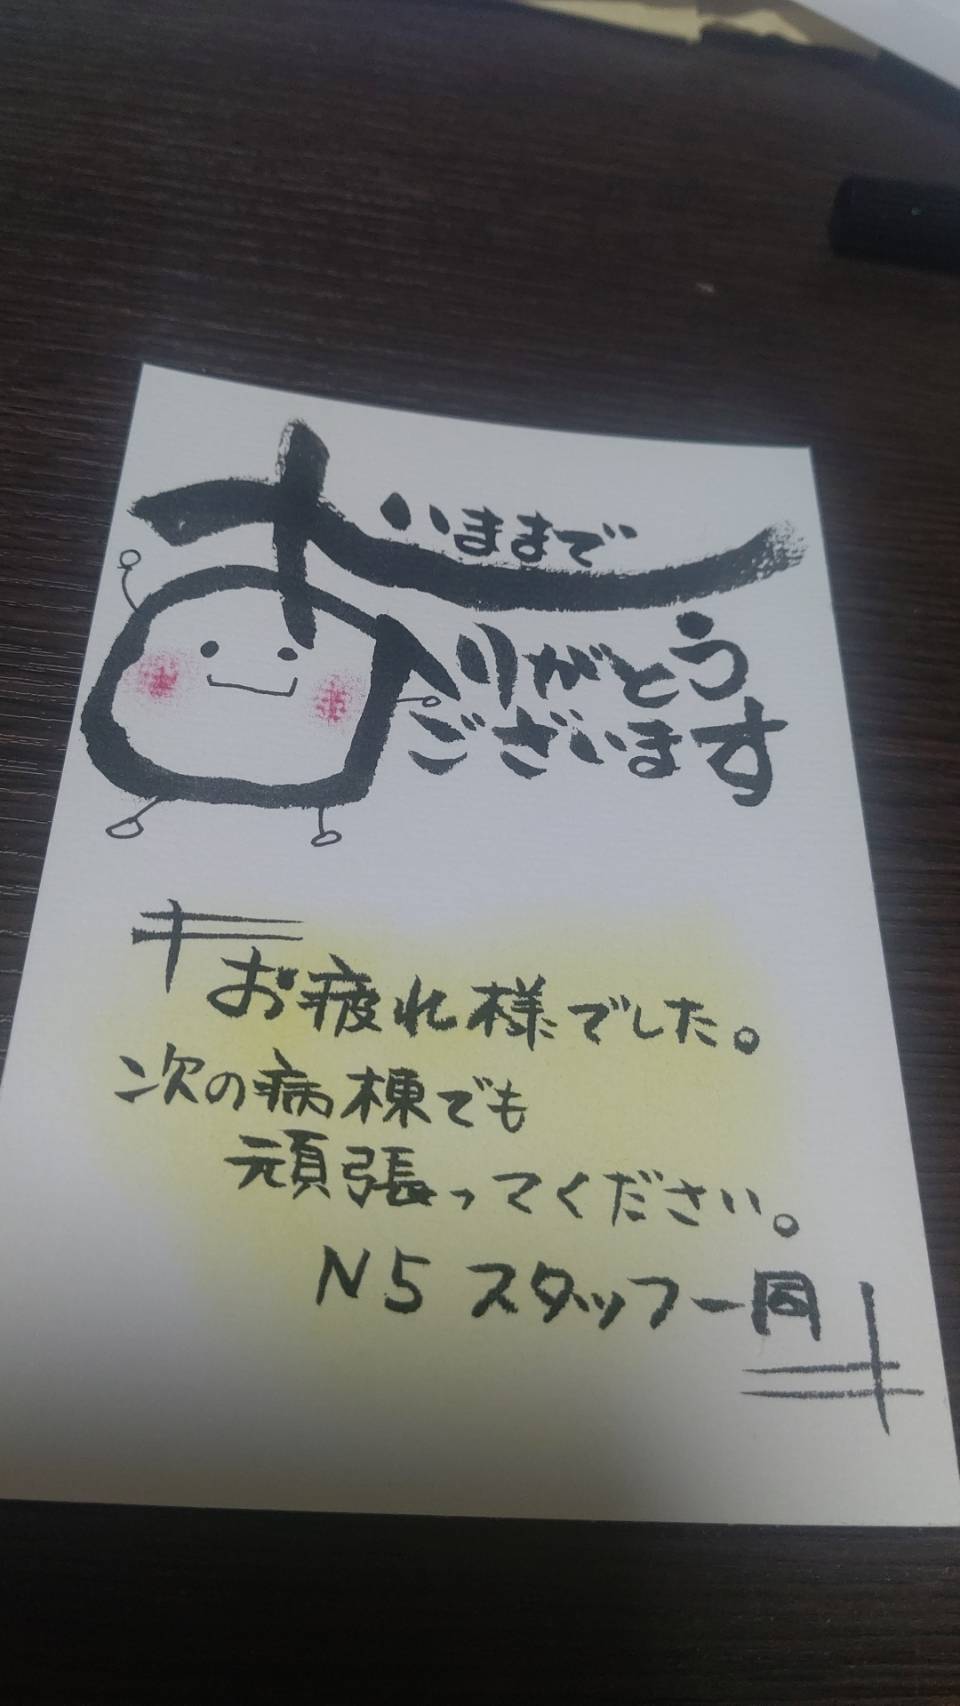 いままで
ありがとう
ございます
お疲れ様でした。
次の病棟でも
頑張ってください。
N5 スタッフ一同